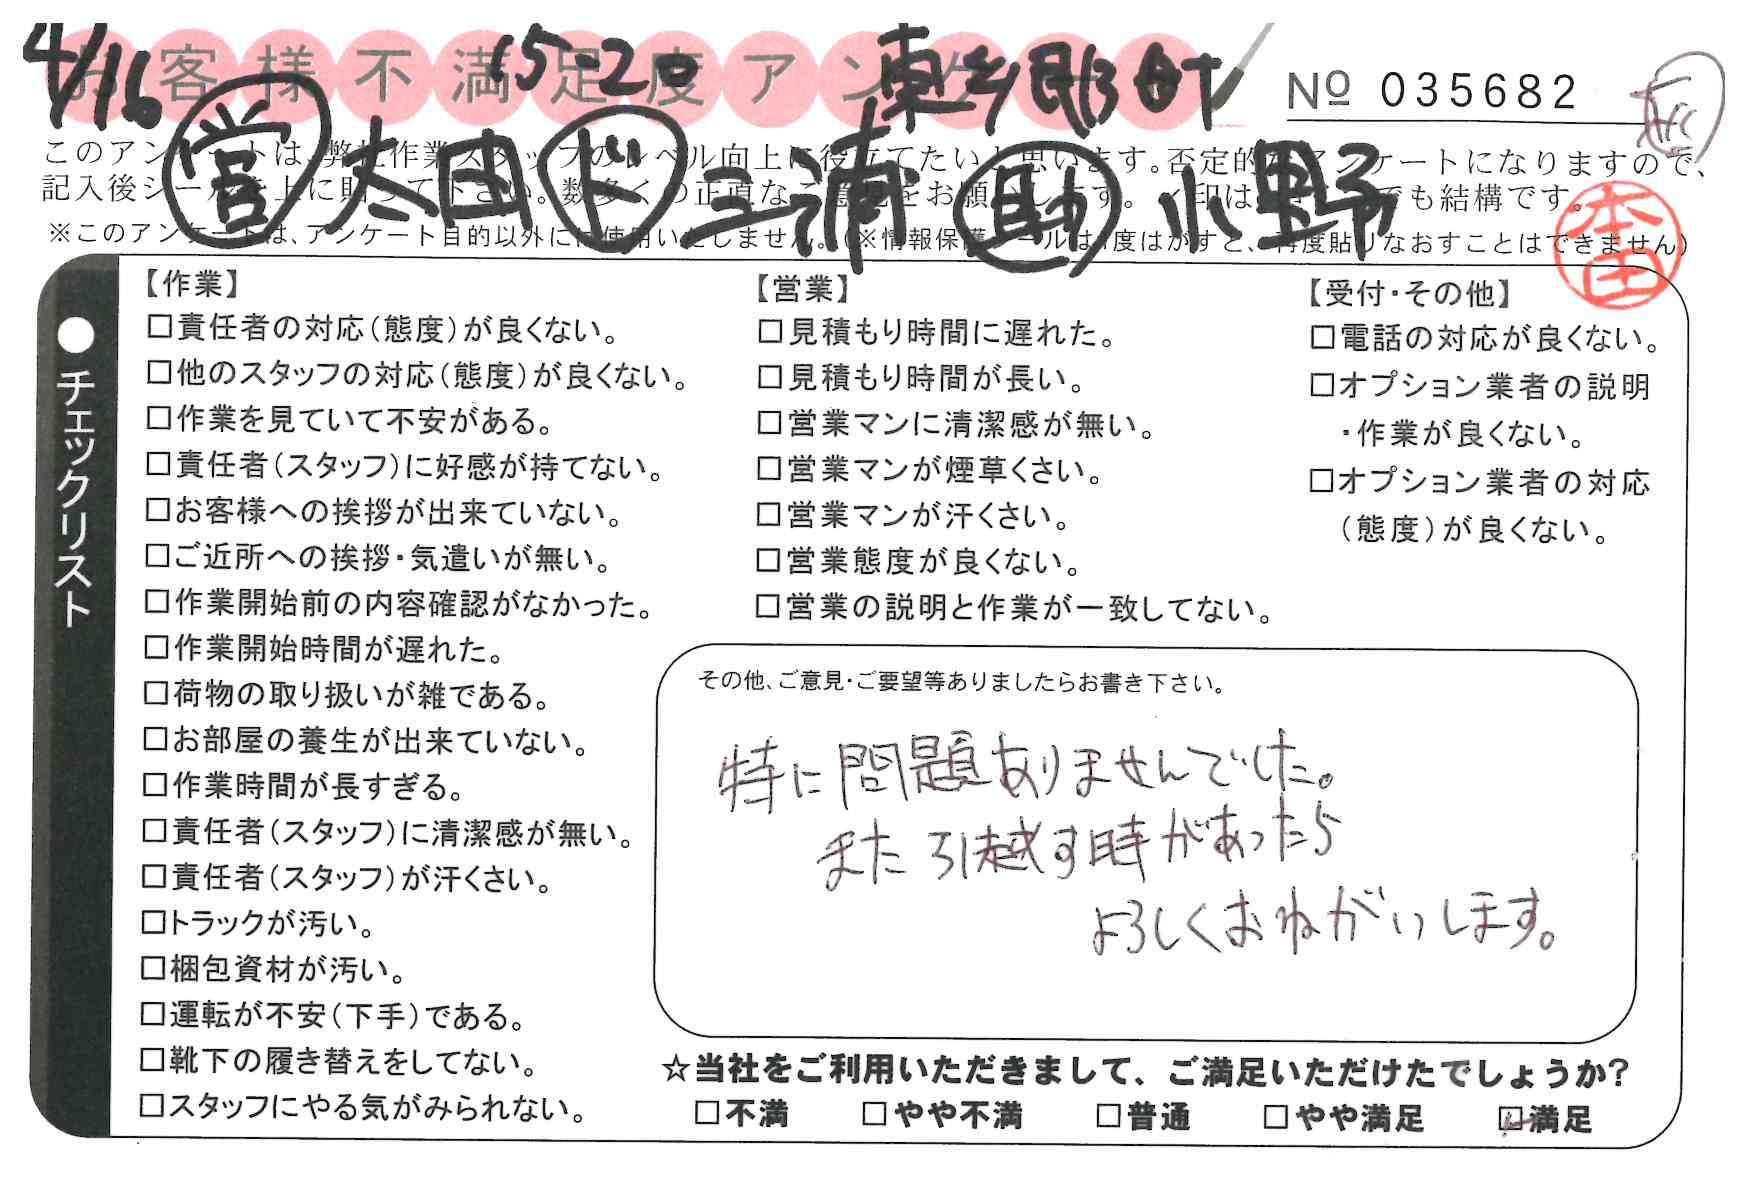 お客様不満足度アンケート
4/16 15-20 東郷町
№ 035682
営 太田 ド 三浦 助 小野
このアンケートは、弊社作業スタッフのレベル向上に役立てたいと思います。否定的なアンケートになりますので、
記入後シールを上に貼って下さい。数多くの正直なご意見をお願いします。
でも結構です。
※このアンケートは、アンケート目的以外には使用いたしません。(※情報保護シールは1度はがすと、再度貼りなおすことはできません)
本田
●チェックリスト
【作業】
□責任者の対応(態度)が良くない。
□他のスタッフの対応(態度)が良くない。
□作業を見ていて不安がある。
□責任者(スタッフ)に好感が持てない。
□お客様への挨拶が出来ていない。
□ご近所への挨拶・気遣いが無い。
□作業開始前の内容確認がなかった。
□作業開始時間が遅れた。
□荷物の取り扱いが雑である。
□お部屋の養生が出来ていない。
□作業時間が長すぎる。
□責任者(スタッフ)に清潔感が無い。
□責任者(スタッフ)が汗くさい。
□トラックが汚い。
□梱包資材が汚い。
□運転が不安(下手)である。
□靴下の履き替えをしてない。
□スタッフにやる気がみられない。
【営業】
□見積もり時間に遅れた。
□見積もり時間が長い。
□営業マンに清潔感が無い。
□営業マンが煙草くさい。
□営業マンが汗くさい。
□営業態度が良くない。
□営業の説明と作業が一致してない。
【受付・その他】
□電話の対応が良くない。
□オプション業者の説明
・作業が良くない。
□オプション業者の対応
(態度)が良くない。
その他、ご意見・ご要望等ありましたらお書き下さい。
特に問題ありませんでした。
また引越す時があったら
よろしくおねがいします。
☆当社をご利用いただきまして、ご満足いただけたでしょうか?
□不満 □やや不満 □普通 □やや満足 ☑満足